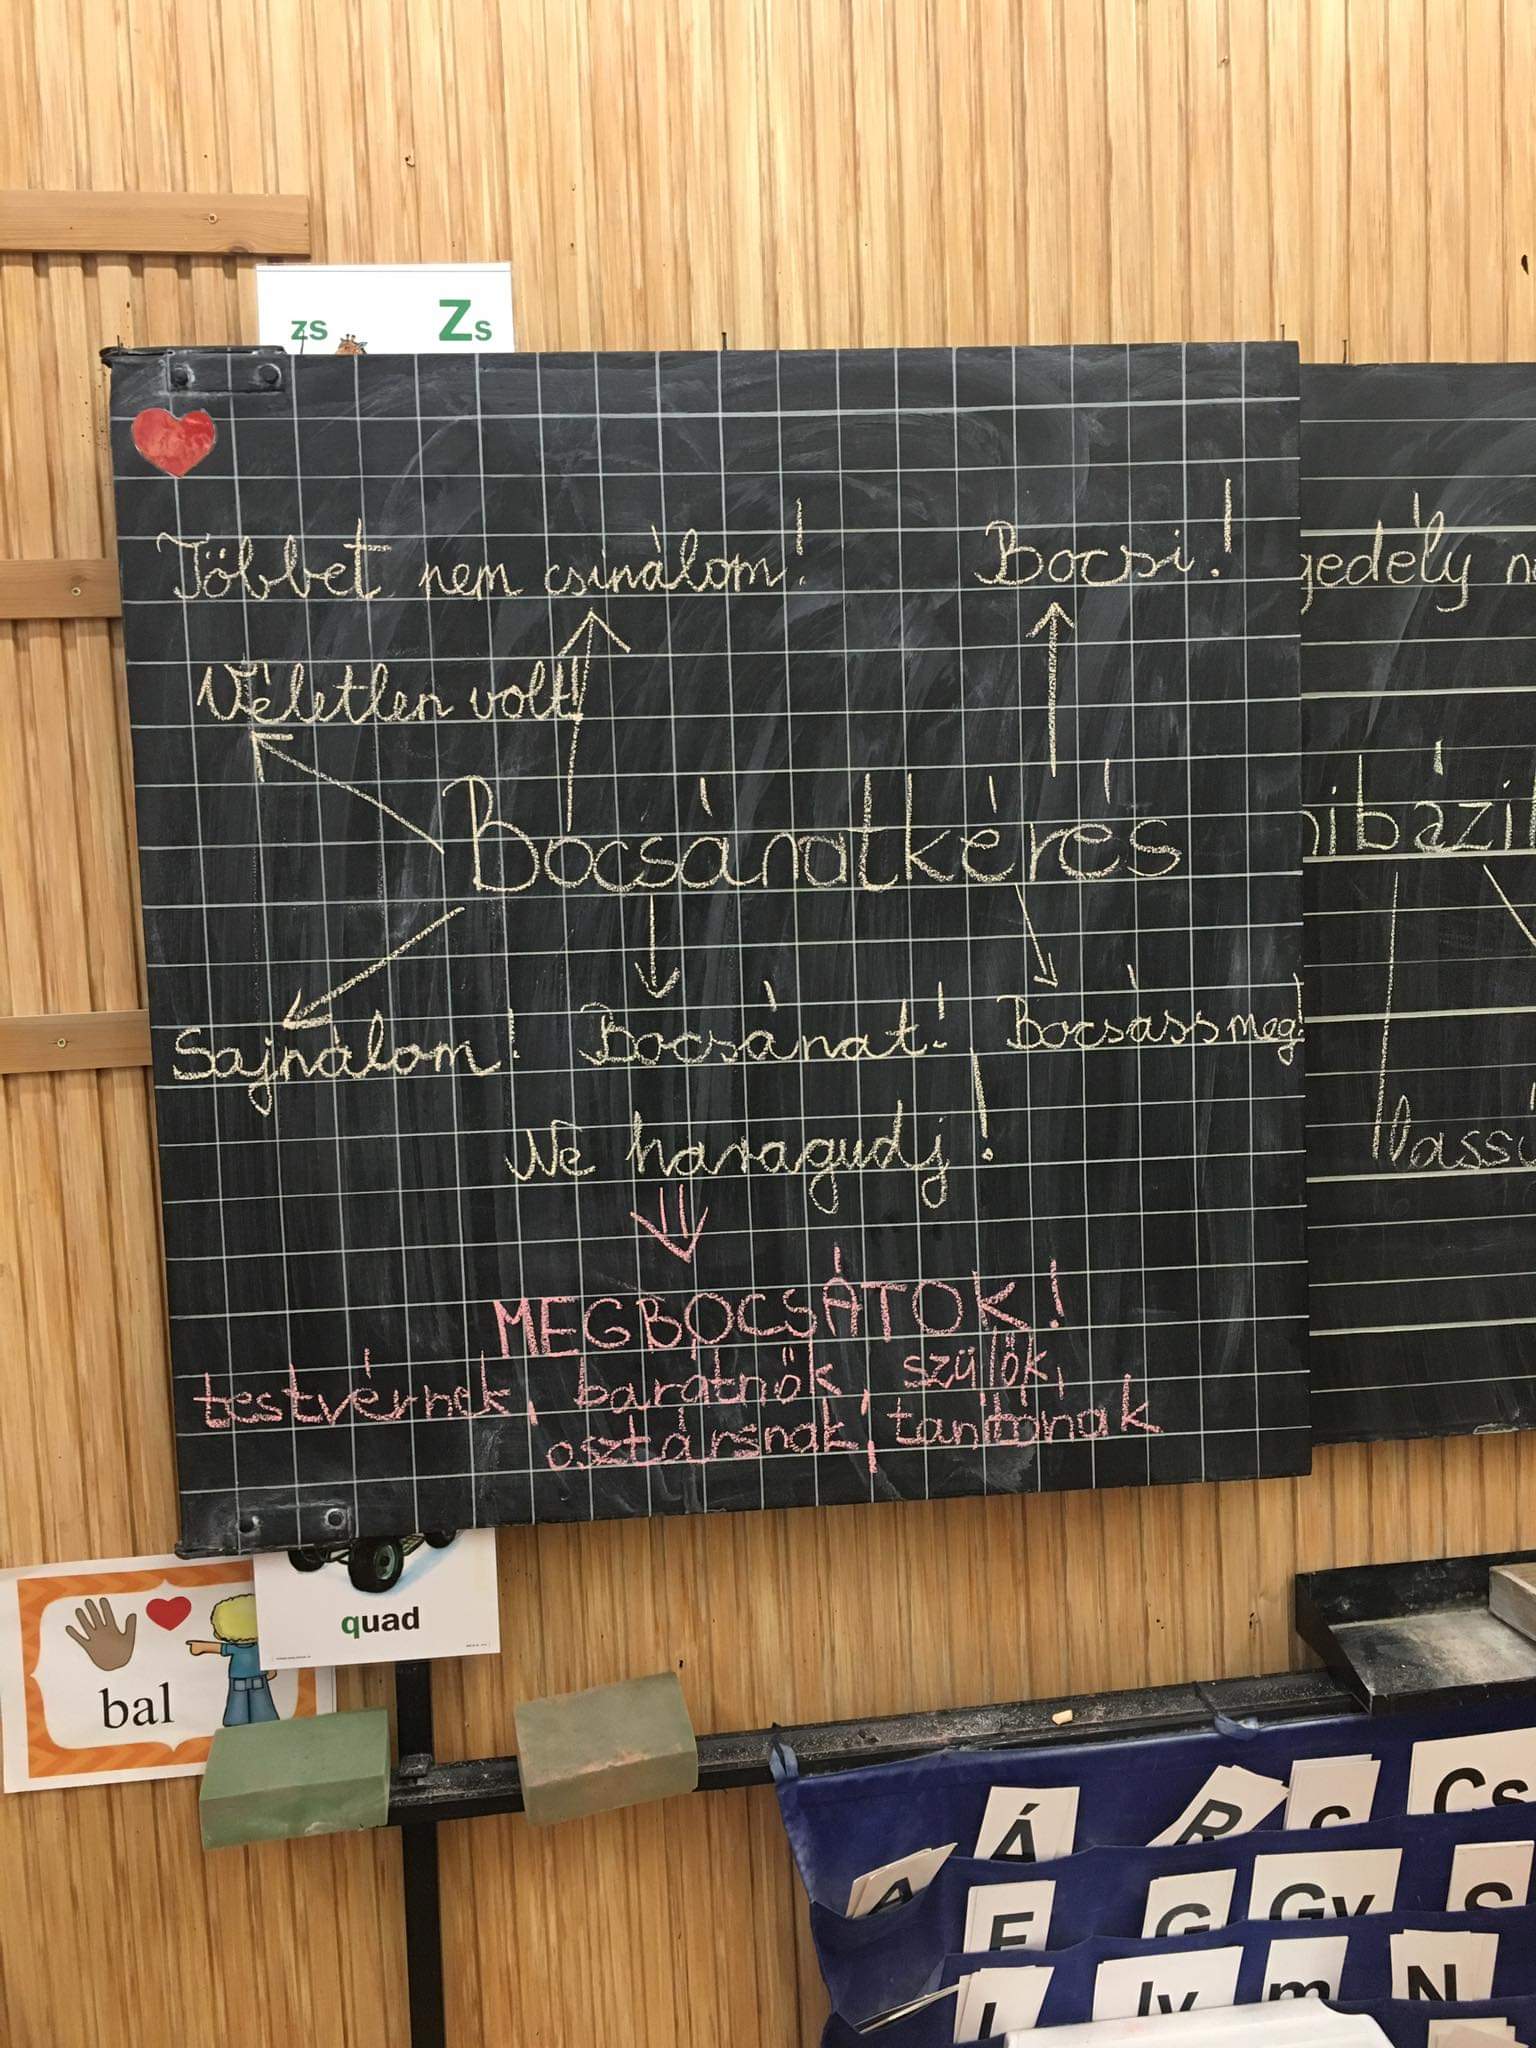 zs Zs
Többet nem csinálom!
Bocsi!
Véletlen volt!
Bocsánatkérés
Sajnálom!
Bocsánat!
Bocsáss meg!
Ne haragudj!
MEGBOCSÁTOK!
testvérnek, barátnők, szülők,
osztársnak, tanítónak
gedély
ibázi
lassú
quad
bal
Á R C Cs
A E G Gy S
I ly m N